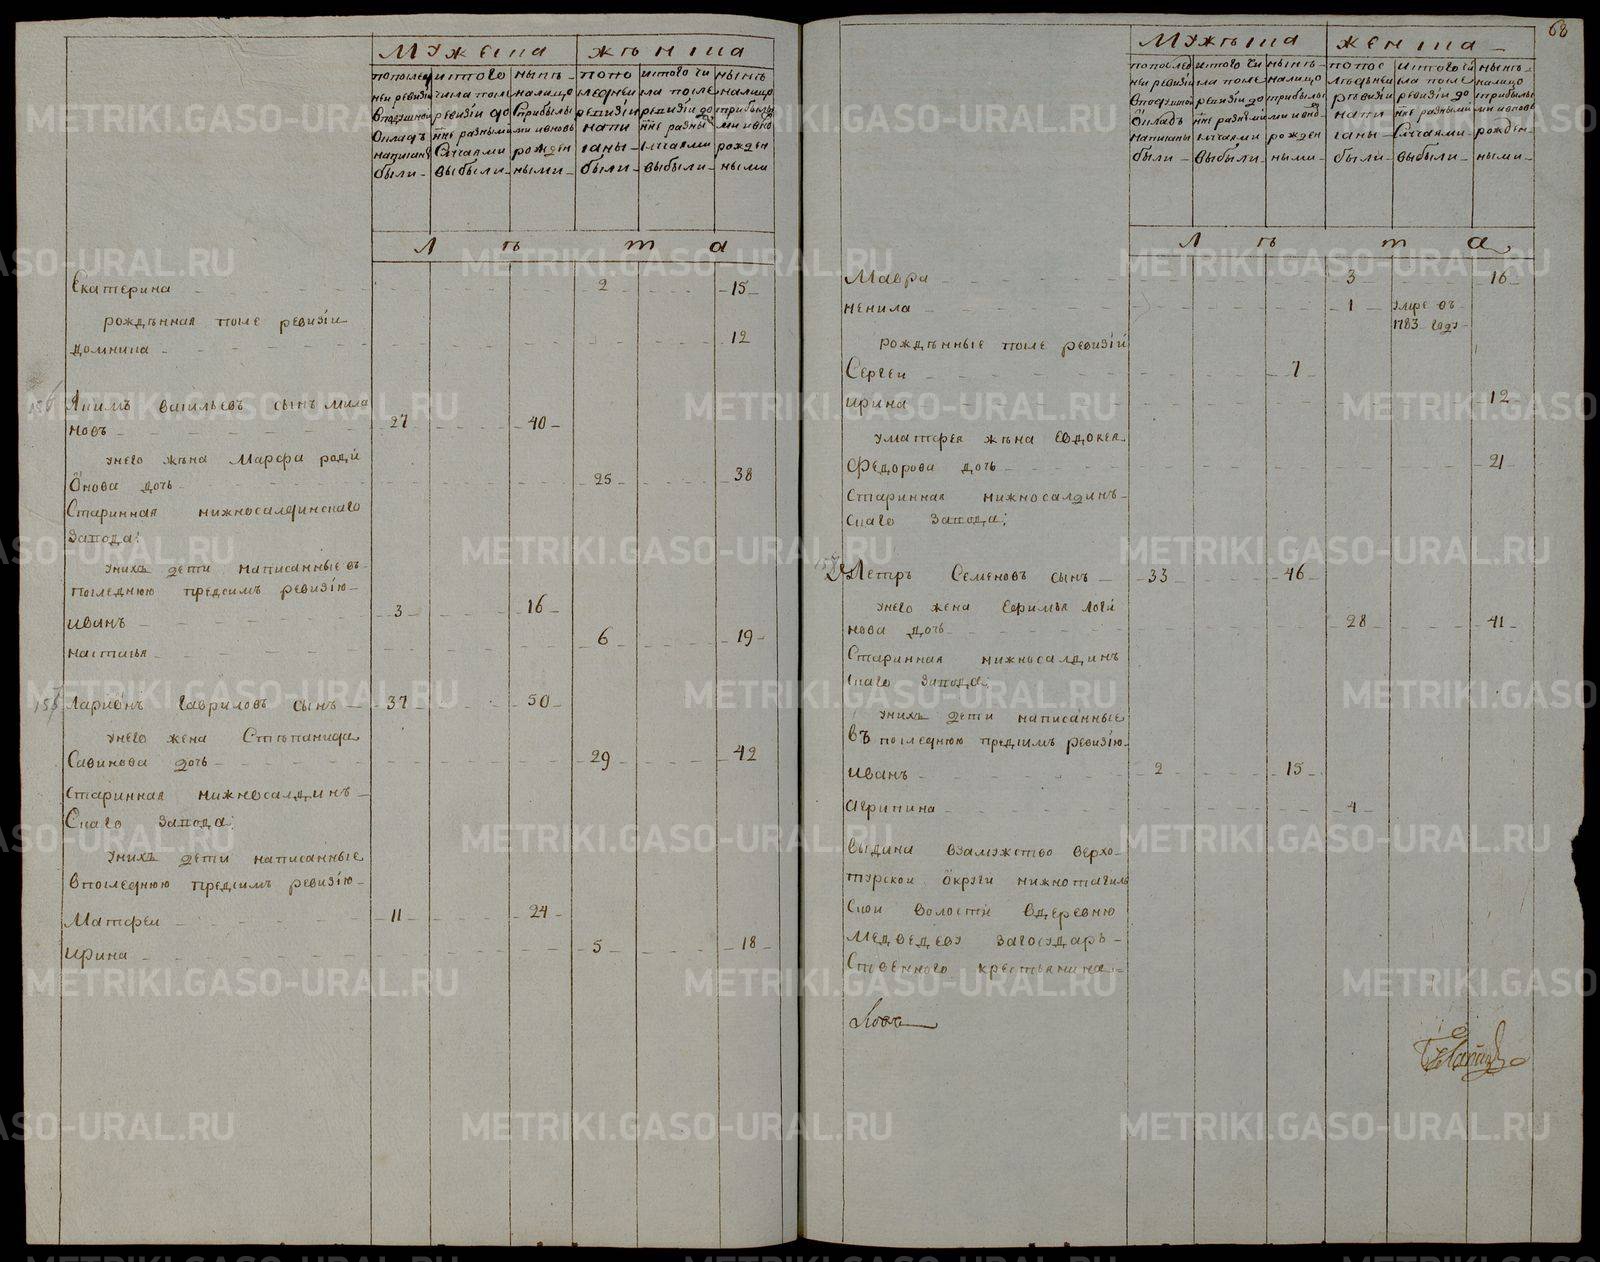 мужеска
женска
попослед
ней ревизіи
вподушной
окладъ
написаны
были
истого
числа после
ревизіи до
ннѣ разными
случаями
выбыли
нынѣ
налицо
сприбылы
ми ивновь
рожден
ными
попо
следней
ревизіи
напи
саны
были
истого чи
сла после
ревизіи до
ннѣ разны
случаями
выбыли
нынѣ
налицо
прибылы
ми ивно
рожден
ными
л ѣ т а
Екатерина 2 15
рожденная после ревизіи
домнина 12
Якимъ васильевъ сынъ мила
новъ 27 40
унего жена Марфа роди
онова дочь 25 38
Старинная нижносалдинскаго
завода;
унихъ дети написанные въ
последнюю предсимъ ревизію
иванъ 3 16
настасья 6 19
157
Ларионъ гавриловъ сынъ 37 50
унего жена Степанида
Савинова дочь 29 42
старинная нижносалдинъ
скаго завода;
унихъ дети написанные
впоследнюю предсимъ ревизію
Матфеи 11 24
ирина 5 18
68
мужеска
женска
попослед
ней ревизіи
вподушной
окладъ
написаны
были
истого чи
сла после
ревизіи до
ннѣ разными
случаями
выбыли
нынѣ
налицо
прибылы
ми ивно
рожден
ными
попос
ледней
ревизіи
напи
саны
были
истого чи
сла после
ревизіи до
ннѣ разными
случаями
выбыли
нынѣ
налицо
прибылы
ми ивновь
рожден
ными
л ѣ т а
Мавра 3 16
ненила 1 умре въ
1783 году
рожденные после ревизіи
Сергеи 7
ирина 12
уматфея жена Евдокея
Федорова дочь 21
старинная нижносалдинъ
скаго завода;
Петръ Семеновъ сынъ 33 46
унего жена Ефимья логи
нова дочь 28 41
Старинная нижносалдинъ
скаго завода;
унихъ дети написанные
въ последнюю предсимъ ревизію
иванъ 2 15
агрипина 4
выдана взамужство верхо
турской округи нижнотагиль
ской волости вдеревню
медведеву загосударь
ственного крестьянина
METRIKI.GASO-URAL.RU